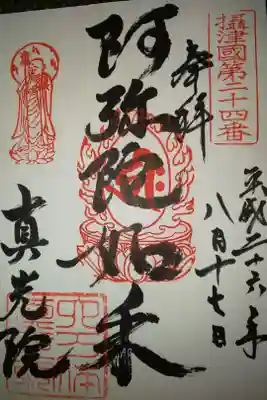 攝津國第二十四番
奉拝
平成二十六年
八月十七日
阿弥陀如来
真光院